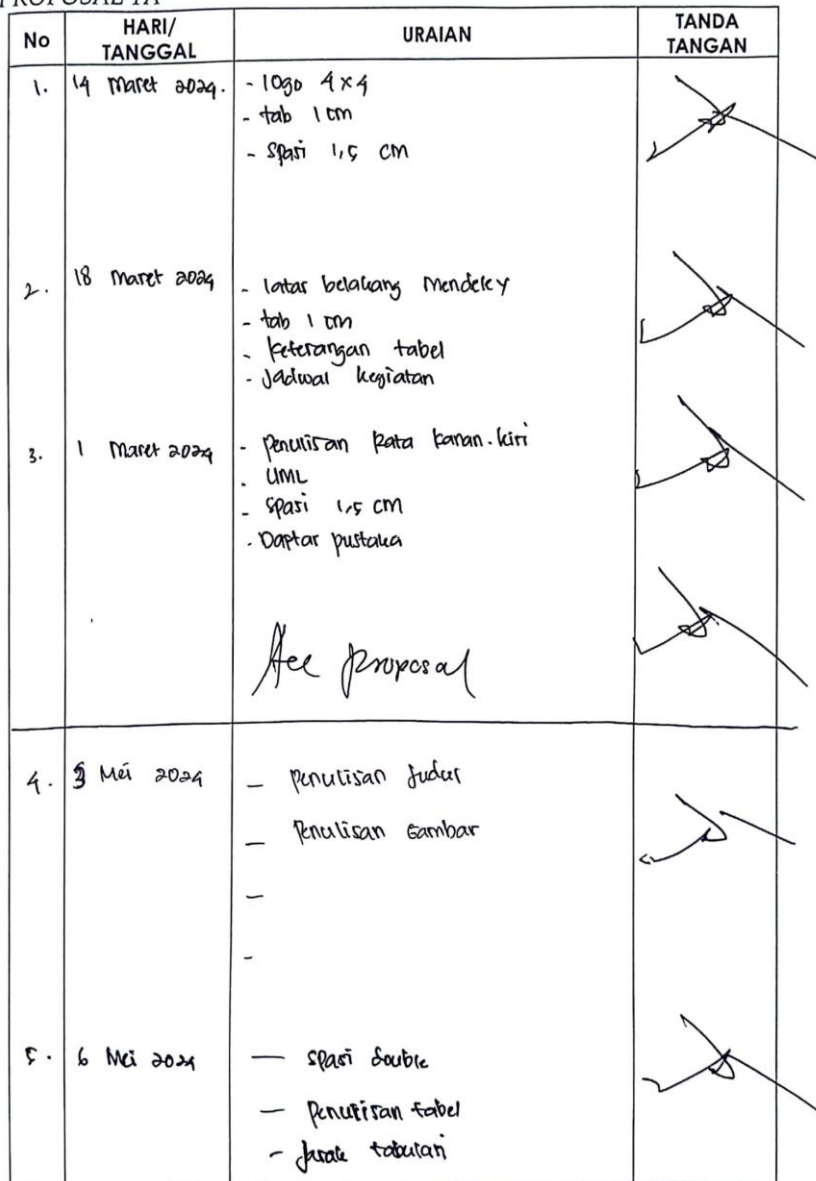 PROPOSAL TA
No HARI/ TANGGAL URAIAN TANDA TANGAN
1. 14 Maret 2024. - logo 4x4
- tab 1 cm
- Spasi 1,5 cm
2. 18 Maret 2024 - latar belakang Mendeley
- tab 1 cm
- keterangan tabel
- Jadwal kegiatan
3. 1 Maret 2024 - Penulisan kata kanan-kiri
- UML
- Spasi 1,5 cm
- Daptar pustaka
Acc proposal
4. 3 Mei 2024 - Penulisan Judul
- Penulisan Gambar
-
-
5. 6 Mei 2024 - Spasi double
- Penulisan tabel
- Jarak tabulasi